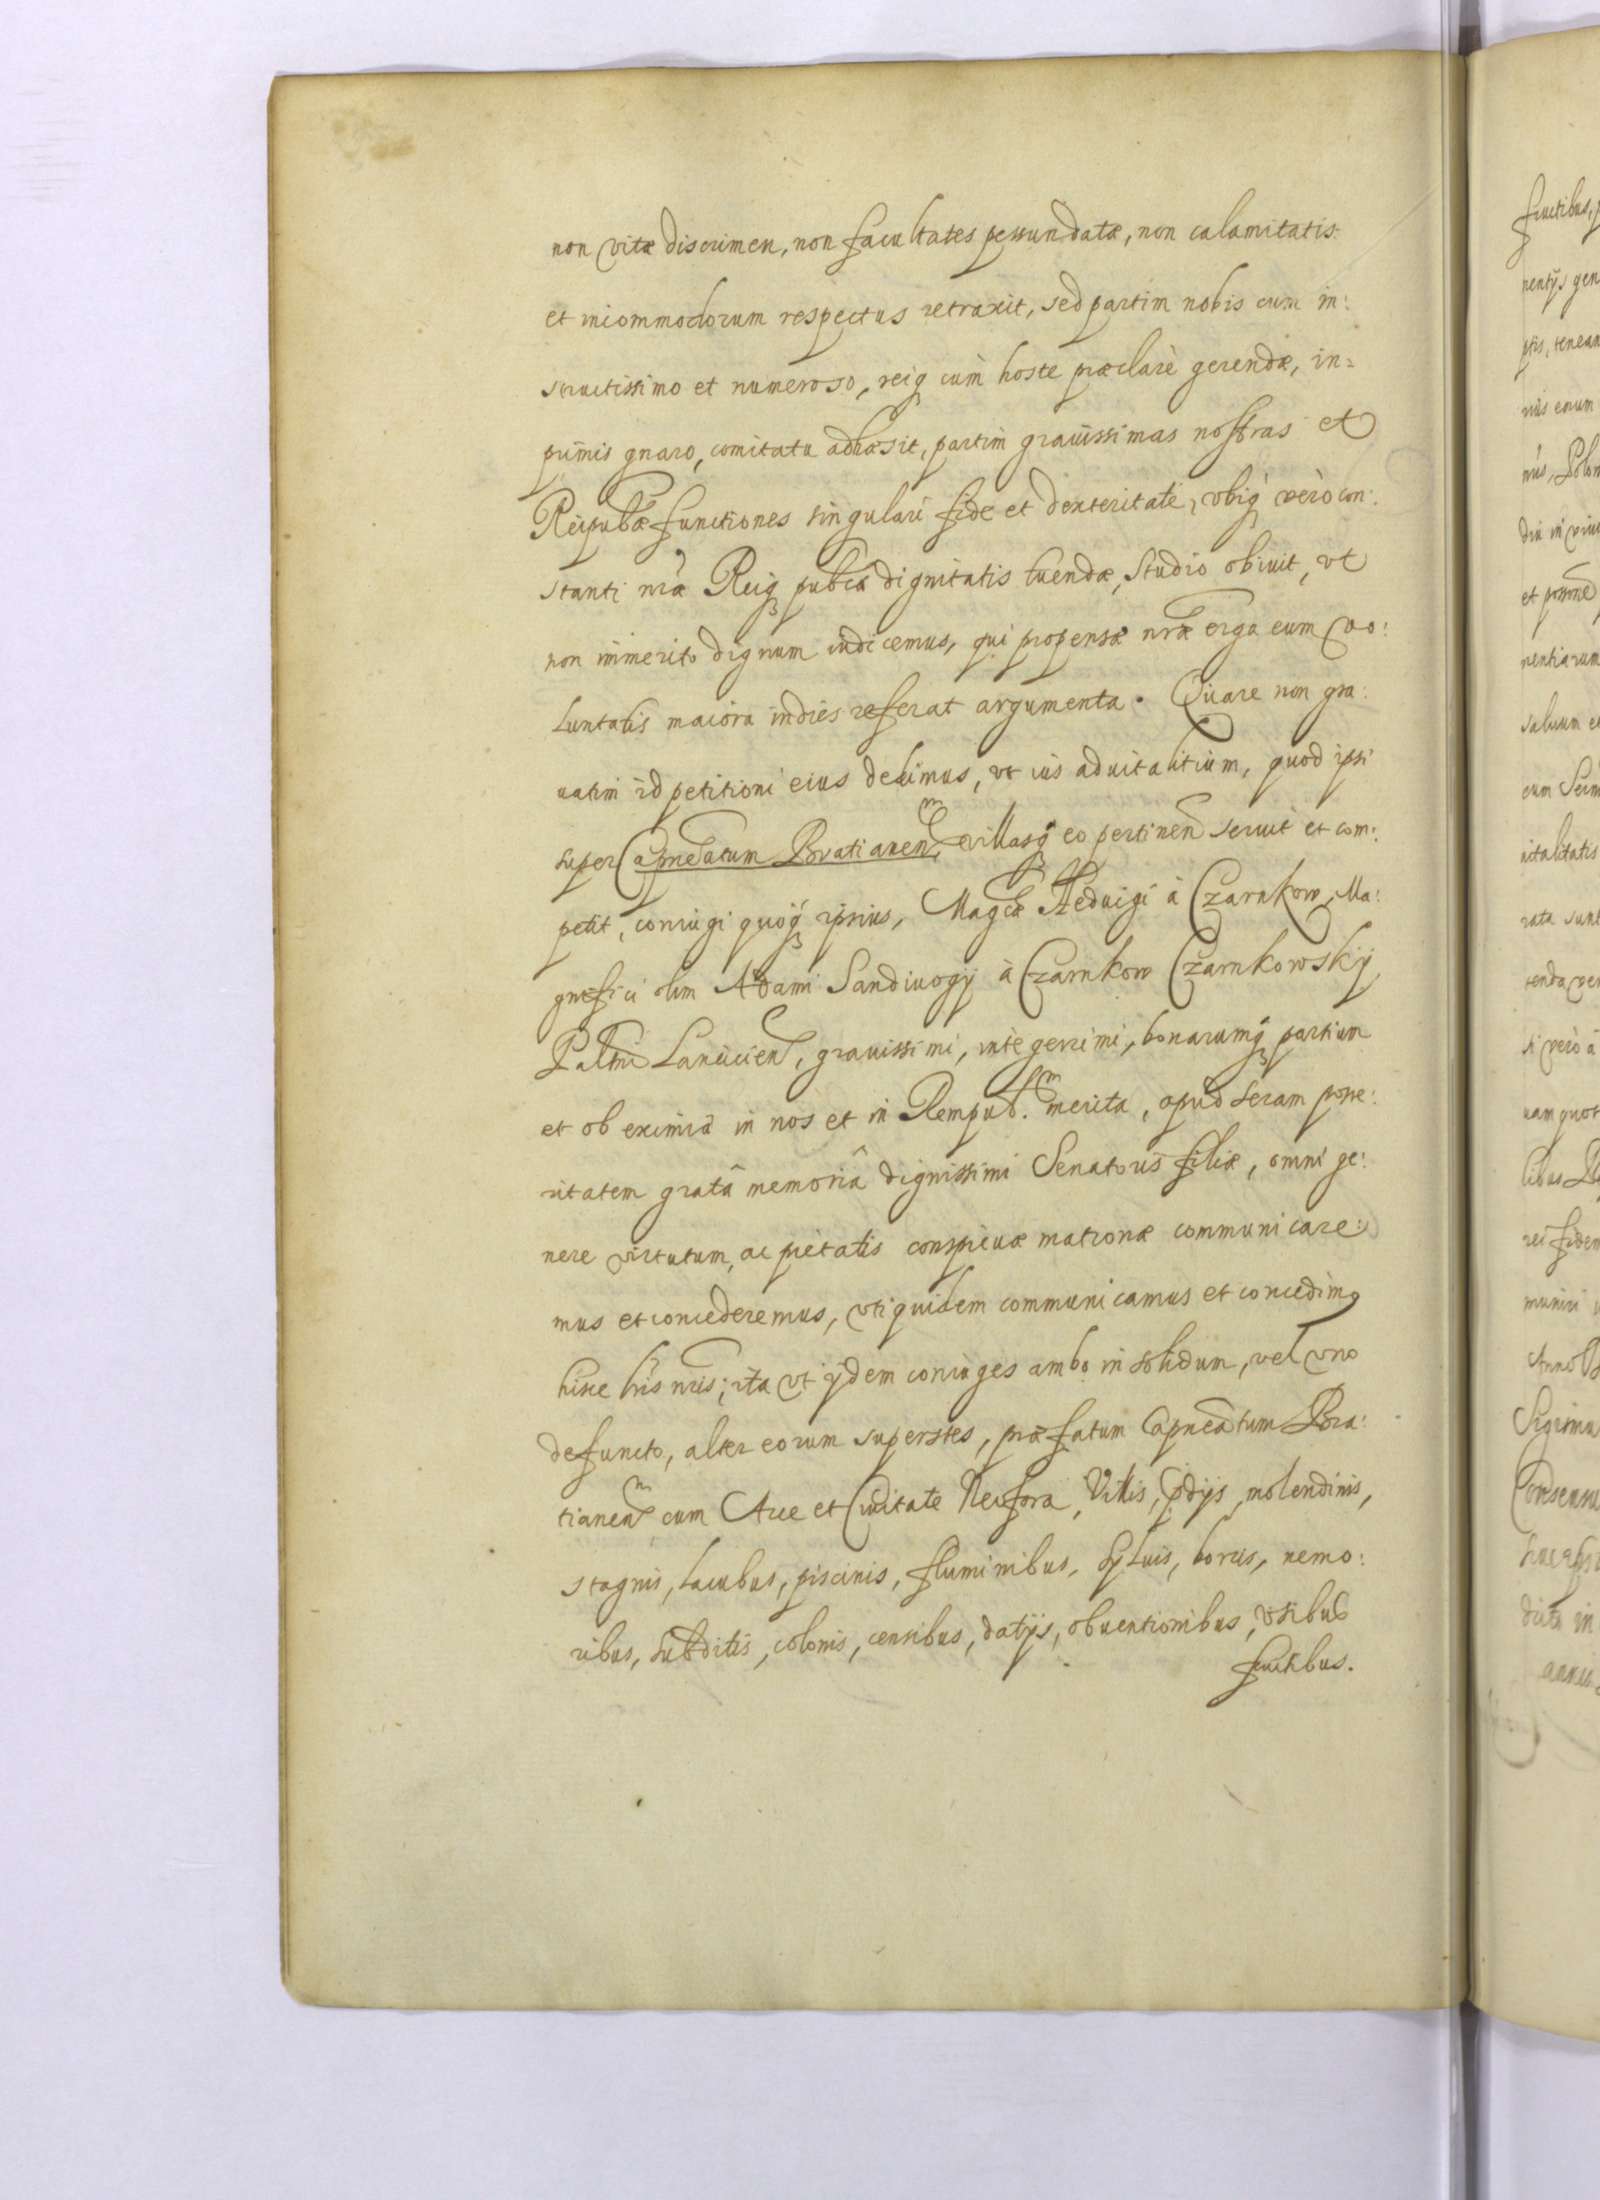 non vitæ discrimen, non facultates pessundatæ, non calamitatis
et incommodorum respectus retraxit, sed partim nobis cum in:
structissimo et numeroso, reiq cum hoste præclarè gerendæ, in=
primis gnaro, comitatu adhæsit, partim gravissimas nostras et
Reipubæ functiones singulari fide et dexteritate, vbiq verò con:
stanti nræ Reiq pubcæ dignitatis tuendæ, studio obiuit, vt
non immerito dignum iudicemus, qui propensæ nræ erga eum vo:
luntatis maiora indies referat argumenta. Quare non gra:
uatim id petitioni eius dedimus, vt ius aduitalitium, quod ipsi
super Capneatum Bratianen^m, villasq eo pertinen seruit et com:
petit, coniugi quoq ipsius, Magcæ Heduigi à Czarnkow, Ma:
gnifici olim Adami Sandiuogij à Czarnkow Czarnkowskij
Paltni Lancicien, grauissimi, integerrimi, bonarumq partium
et ob eximia in nos et in Rempub.^m merita, apud seram poste:
ritatem gratâ memoriâ dignissimi Senatoris filiæ, omni ge:
nere virtutum, ac pietatis conspicuæ matronæ communicare:
mus et concederemus, vti quidem communicamus et concedimq
hisce lris nris; ita vt ijdem coniuges ambo in solidum, vel vno
defuncto, alter eorum superstes, præfatum Capneatum Bra:
tianen^m cum Arce et Ciuitate Neofora, Villis, pdijs, molendinis,
stagnis, lacubus, piscinis, fluminibus, syluis, borris, nemo:
ribus, subditis, colonis, censibus, datijs, obuentionibus, vsibus
fructibus.
fructibus,
nentijs gen
ptis, tenean
rijs enum
salvum et
vitalitatis
rata sunt
tenda ver
si verò à
uam quot
rei fidem
muniri
Anno
Sigismu
Consensu
dicta in